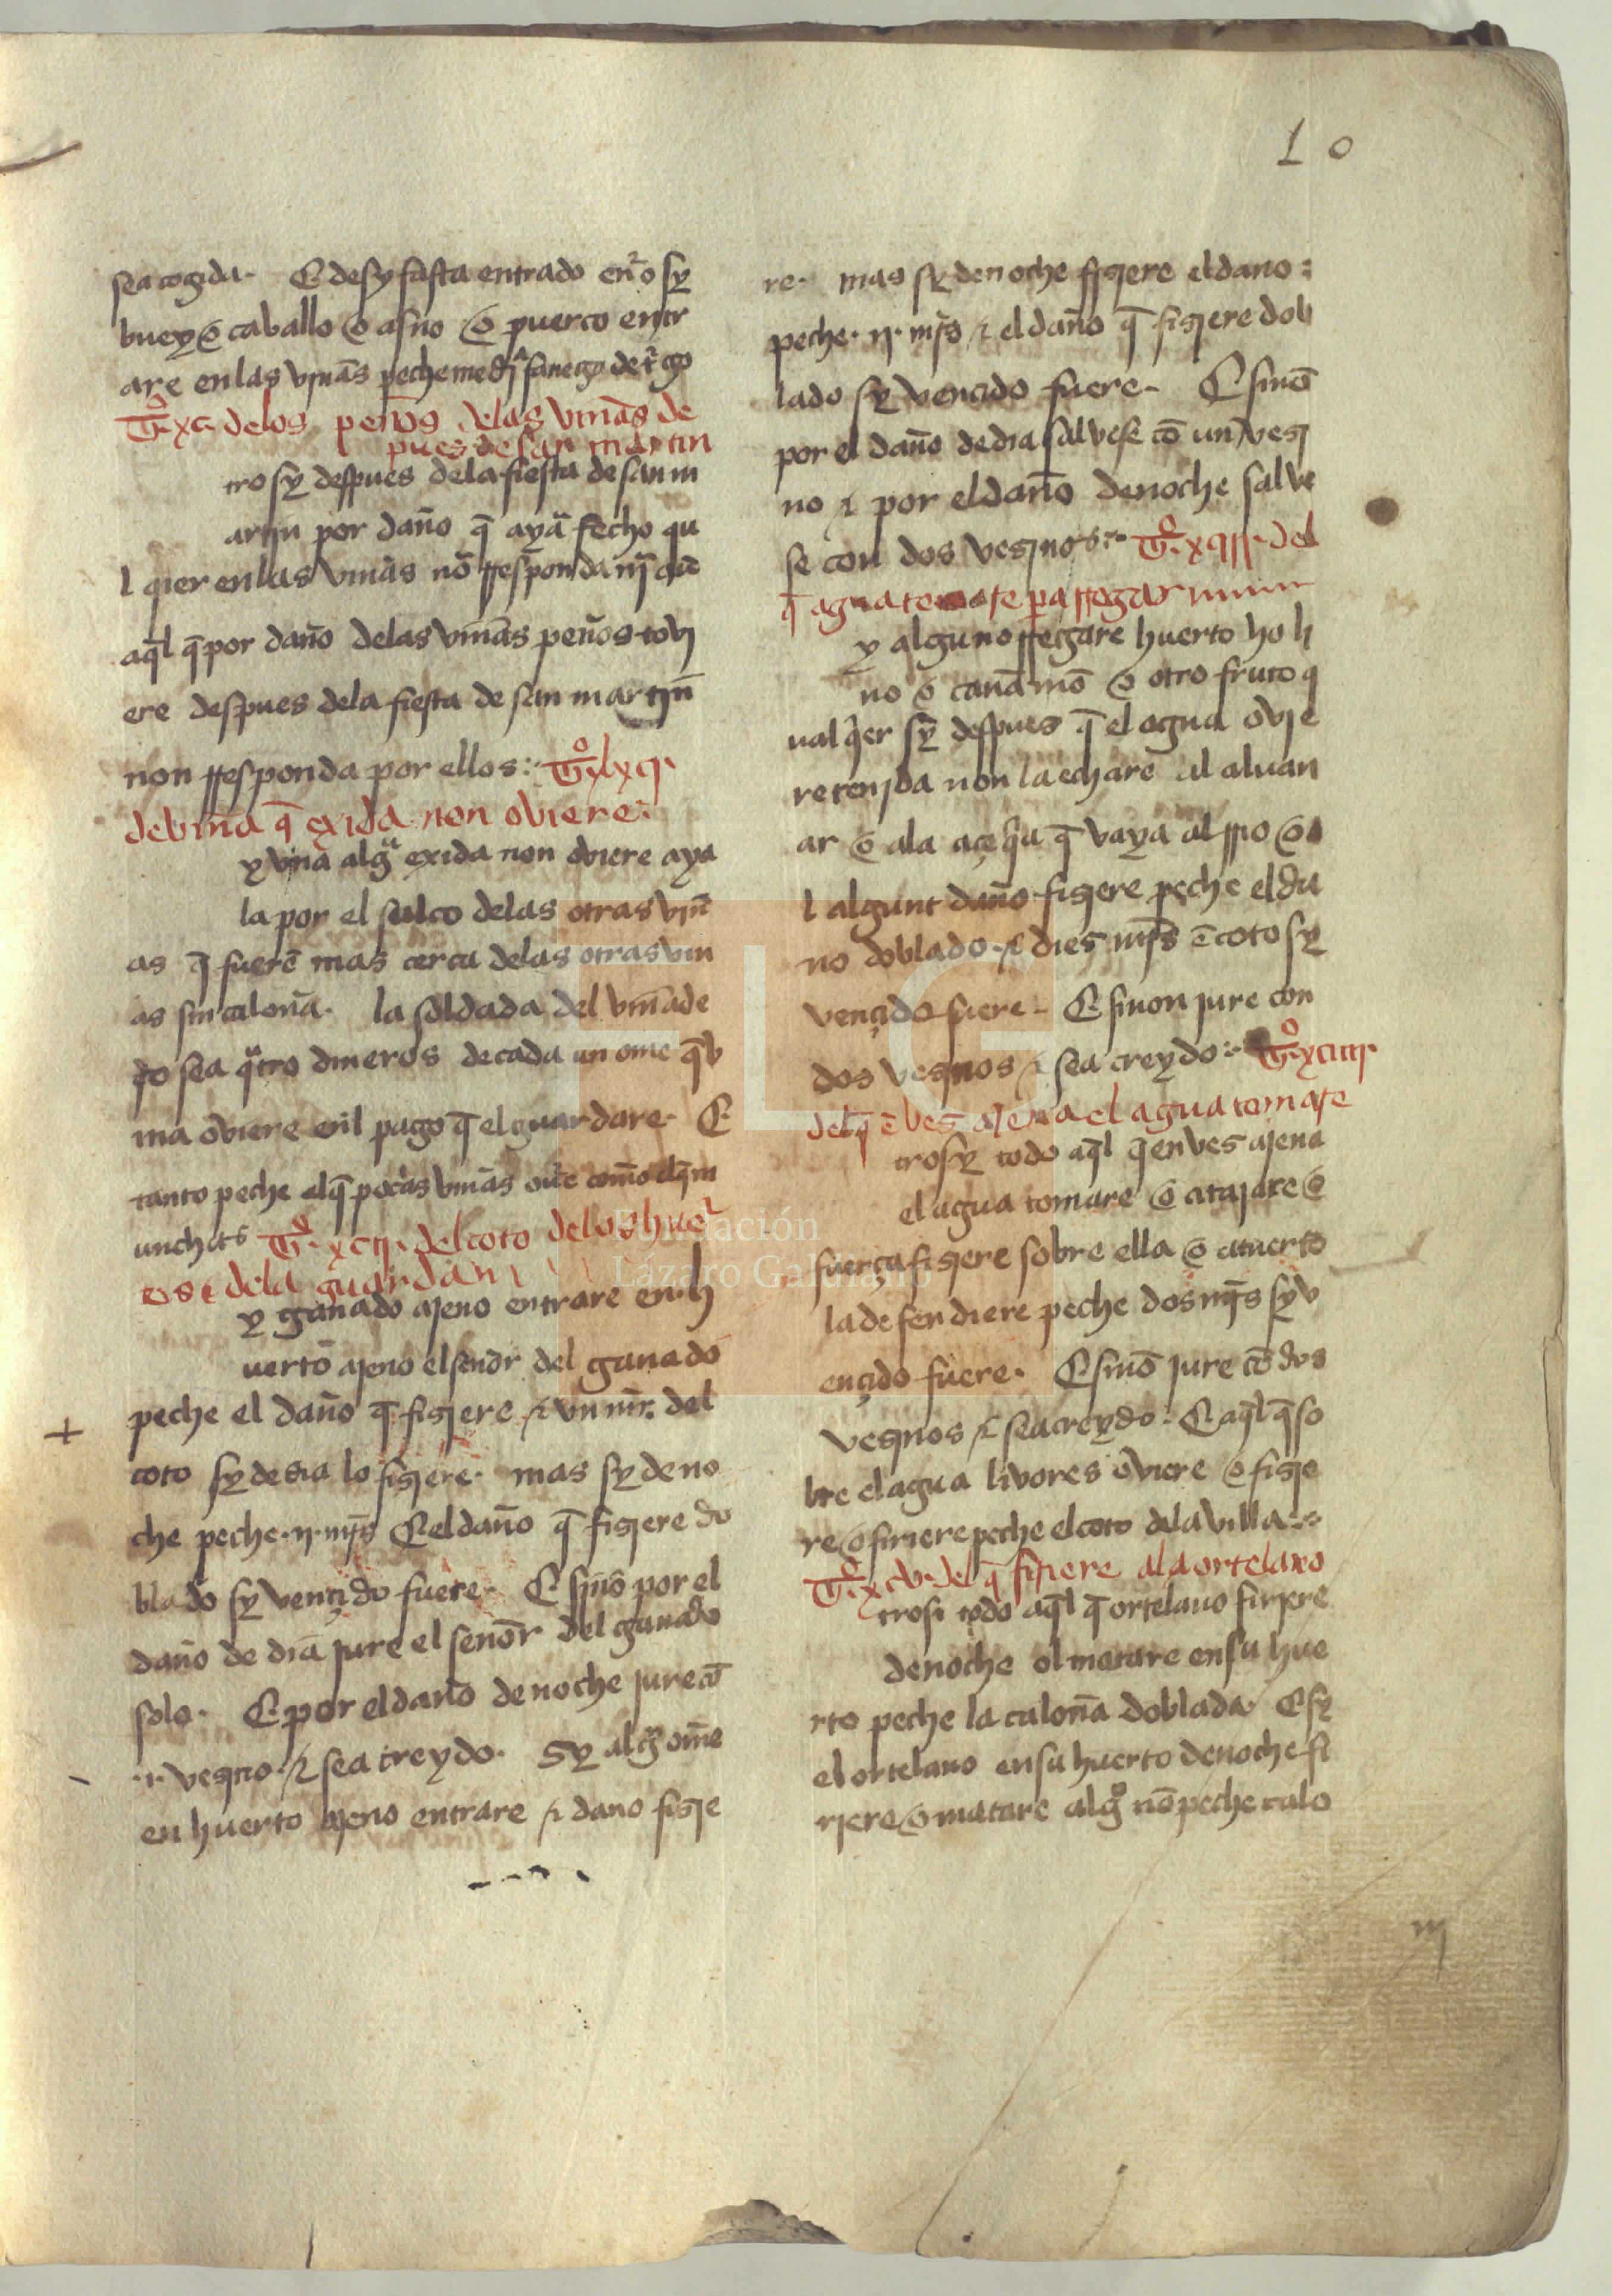 10
sea cogida. E desy fasta entrado en̄o sy
buey o caballo o asno o puerco entr
are en las vinas peche medi fanega de tgo
T.º xc. delos peños delas vinas de
pues de san martin
tro sy despues dela fiesta de san m
artin por daño q̄ ayā fecho qu
l quier en las vinas nō rresponda
aq̄l q̄ por daño delas vinas peños tovi
ere despues dela fiesta de san martin
non rresponda por ellos: T.º
de vina q̄ exida non oviere.
y vina algª exida non oviere aya
la por el sulco delas otras vin
as q̄ fuerē mas cerca delas otras vin
as sin caloña. la soldada del vinade
ro sea qªtro dineros de cada un ome q̄ v
ina oviere en̄l pago q̄ el guardare. E
tanto peche elq̄ pocas vinas oūe comō el q̄ m
unchas T.º xcij. del coto delos huer
tos e dela guardam
y ganado ajeno entrare en h
uerto ajeno el señor del ganado
peche el daño q̄ fisiere e un mr̄. del
coto sy de dia lo fisiere. mas sy de no
che peche .ij. mr̄s E el daño q̄ fisiere do
blado sy vençido fuere. E sinō por el
daño de dia jure el señor del ganado
solo. E por el daño de noche jure cō
.i. vesino e sea creydo. Sy algº ome
en huerto ajeno entrare e dano fisie
re. mas sy de noche fisiere el dano:
peche .ij. mr̄s e el daño q̄ fisiere dob
lado sy vencido fuere. E sinō
por el daño de dia salvese cō un vesi
no e por el daño de noche salve
se con dos vesinos: T.º xciij. del
q̄ agua tomase pa rregar
y alguno rregare huerto ho li
no o cañamō o otro fruto q
ual q̄er sy despues q̄ el agua ovie
re tenida non la echare al aluan
ar o ala açeq̄a q̄ vaya al rrio o a
l algunt daño fisiere peche el da
no doblado. e dies mr̄s ē coto sy
vençido fuere. E sinon jure con
dos vesinos e sea creydo: T.º xciiij.
del q̄ ē ves ajena el agua tomase
trosy todo aq̄l q̄ en ves ajena
el agua tomare o atajare o
fuerça fisiere sobre ella o a tuerto
la defendiere peche dos mr̄s sy v
ençido fuere. E sinō jure cō dos
vesinos e sea creydo. E aq̄l q̄ so
bre el agua livores oviere o fisie
re o firiere peche el coto dela villa
T.º xcv. del q̄ firiere al aortelano
trosi todo aq̄l q̄ ortelano firiere
de noche ol matare en su hue
rto peche la caloña doblada. E sy
el ortelano en su huerto de noche fi
riere o matare algº nō peche calo
iij
Fundación
Lázaro Galdiano
FLG